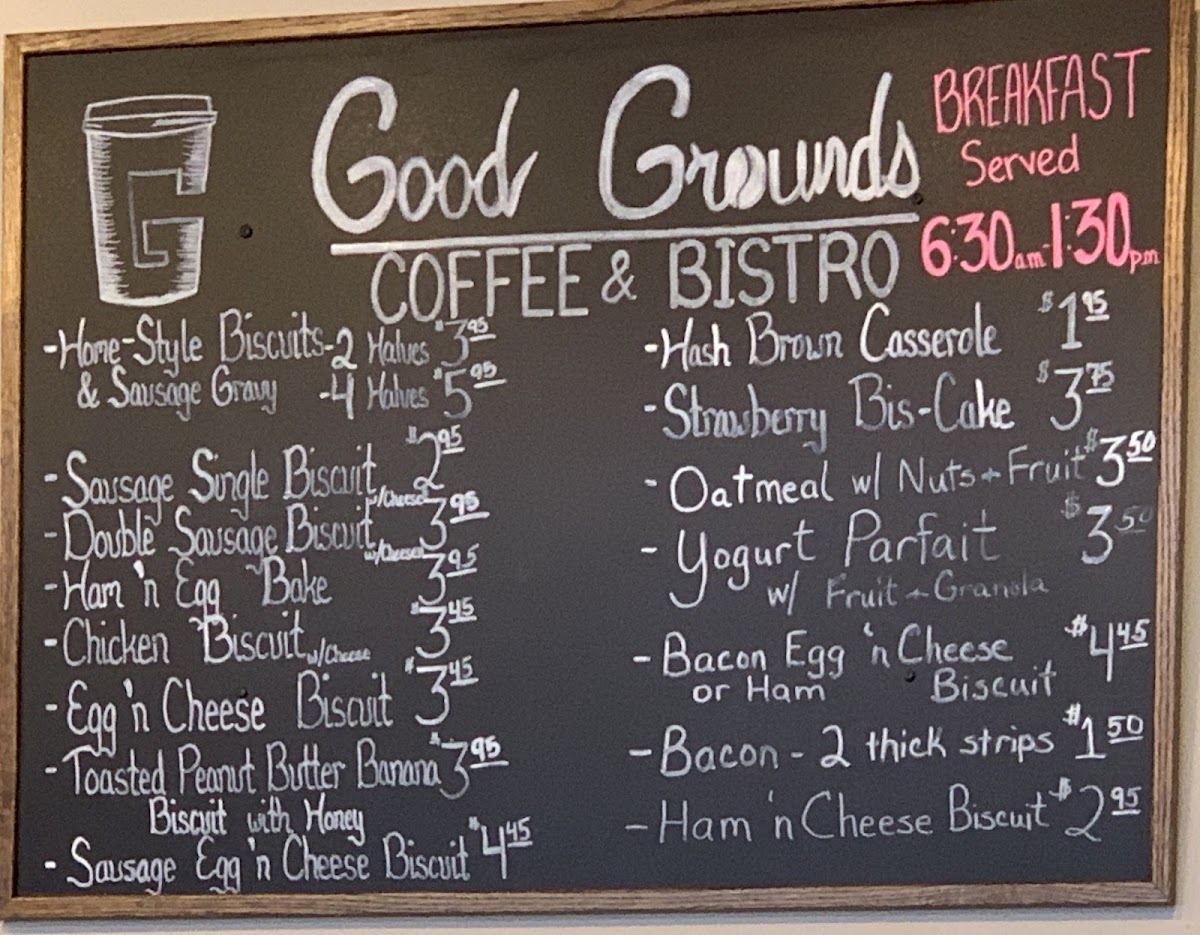 Good Grounds
COFFEE & BISTRO
BREAKFAST
Served
6:30am-1:30pm
-Home-Style Biscuits-2 Halves $3.95
& Sausage Gravy -4 Halves $5.95
-Sausage Single Biscuit w/Cheese $2.95
-Double Sausage Biscuit w/Cheese 3.95
-Ham 'n Egg Bake 3.95
-Chicken Biscuit w/Cheese $3.45
-Egg 'n Cheese Biscuit $3.45
-Toasted Peanut Butter Banana $3.95
Biscuit with Honey
-Sausage Egg 'n Cheese Biscuit $4.45
-Hash Brown Casserole $1.95
-Strawberry Bis-Cake $3.75
-Oatmeal w/ Nuts + Fruit $3.50
-Yogurt Parfait $3.50
w/ Fruit + Granola
-Bacon Egg 'n Cheese $4.45
or Ham Biscuit
-Bacon - 2 thick strips $1.50
-Ham 'n Cheese Biscuit $2.95